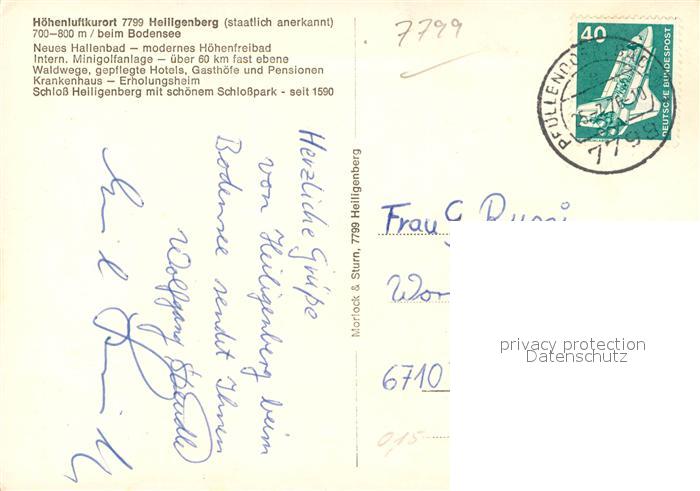 Höhenluftkurort 7799 Heiligenberg (staatlich anerkannt)
700–800 m / beim Bodensee
Neues Hallenbad – modernes Höhenfreibad
Intern. Minigolfanlage – über 60 km fast ebene
Waldwege, gepflegte Hotels, Gasthöfe und Pensionen
Krankenhaus – Erholungsheim
Schloß Heiligenberg mit schönem Schloßpark - seit 1590
7799
40
DEUTSCHE BUNDESPOST
Herzliche Grüße
von Heiligenberg beim
Bodensee sendet Ihnen
Wolfgang
Morlock & Sturn, 7799 Heiligenberg
Frau G
6710
0,15
privacy protection
Datenschutz